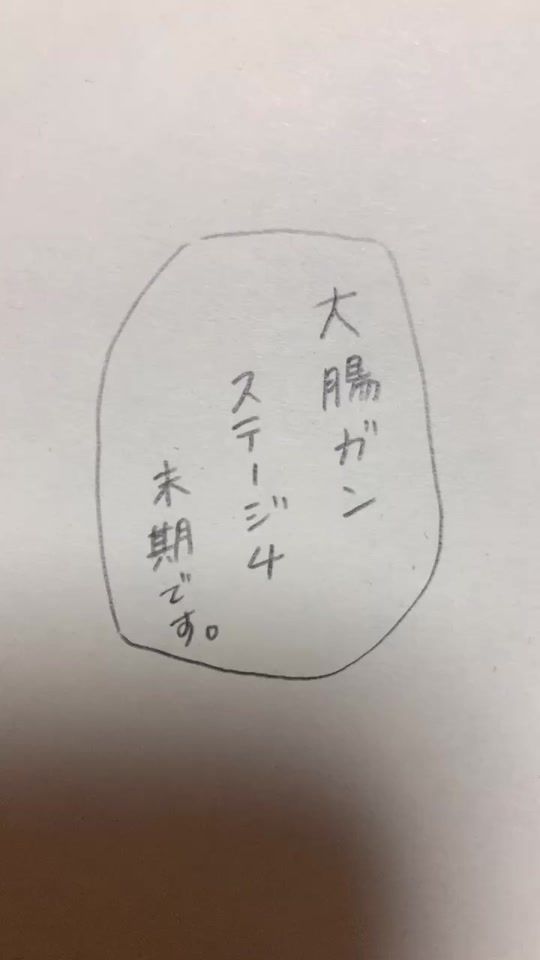 大腸ガン
ステージ4
末期です。